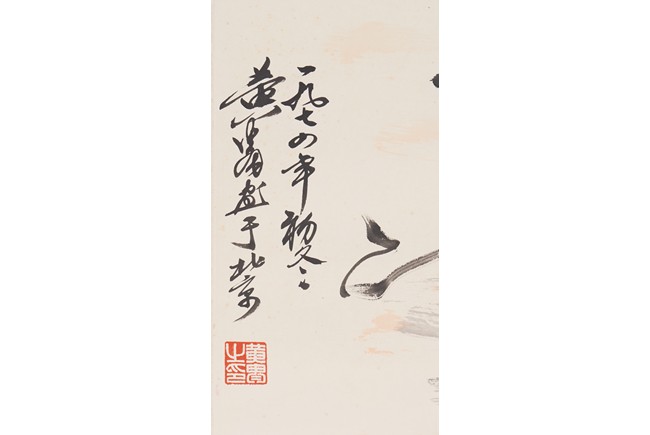 一九七四年初冬
黄胄畫于北京
黄胄
之印